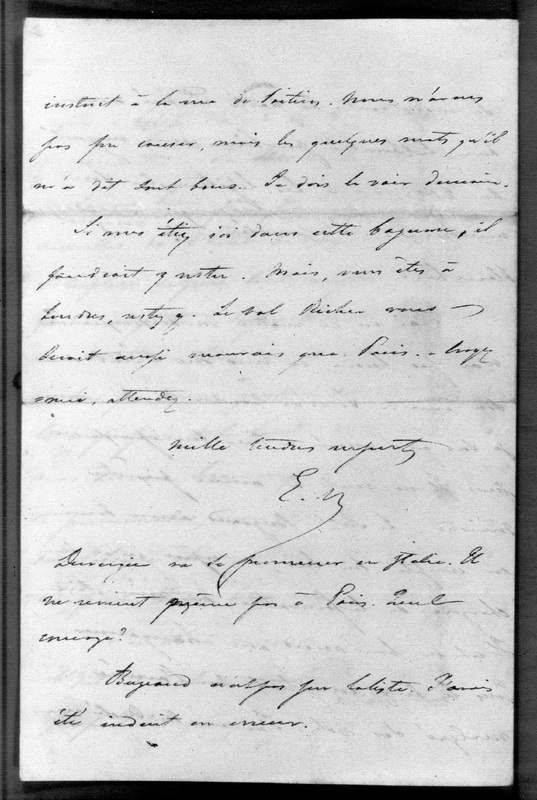 instant à la rue de Poitiers. Nous n'avons
pas pu causer, mais les quelques mots qu'il
m'a dit sont bons. Je dois le voir demain.
Si vous étiez ici dans cette bagarre, il
faudrait y rester. Mais, vous êtes à
Londres, restez y. Le Val Richer vous
serait aussi mauvais que Paris. Croyez
moi, attendez.
Mille tendres respects
E. V
Duvergier va se promener en Italie. Il
ne revient même pas à Paris. Quel
courage?
Bugeaud n'est pas sur la liste. J'avais
été induit en erreur.